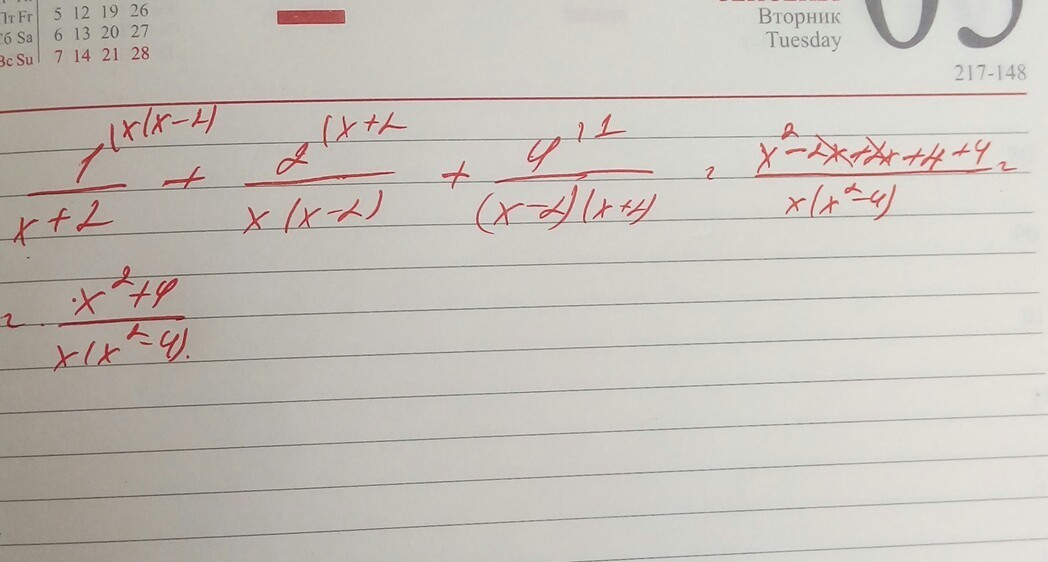 Пт Fr 5 12 19 26
Сб Sa 6 13 20 27
Вс Su 7 14 21 28
Вторник
Tuesday
05
217-148
1^(x(x-2) / x+2 + 2^(x+2 / x(x-2) + 4^)1 / (x-2)(x+2) = x²-2x+2x+4+4 / x(x²-4) =
= x²+4 / x(x²-4).